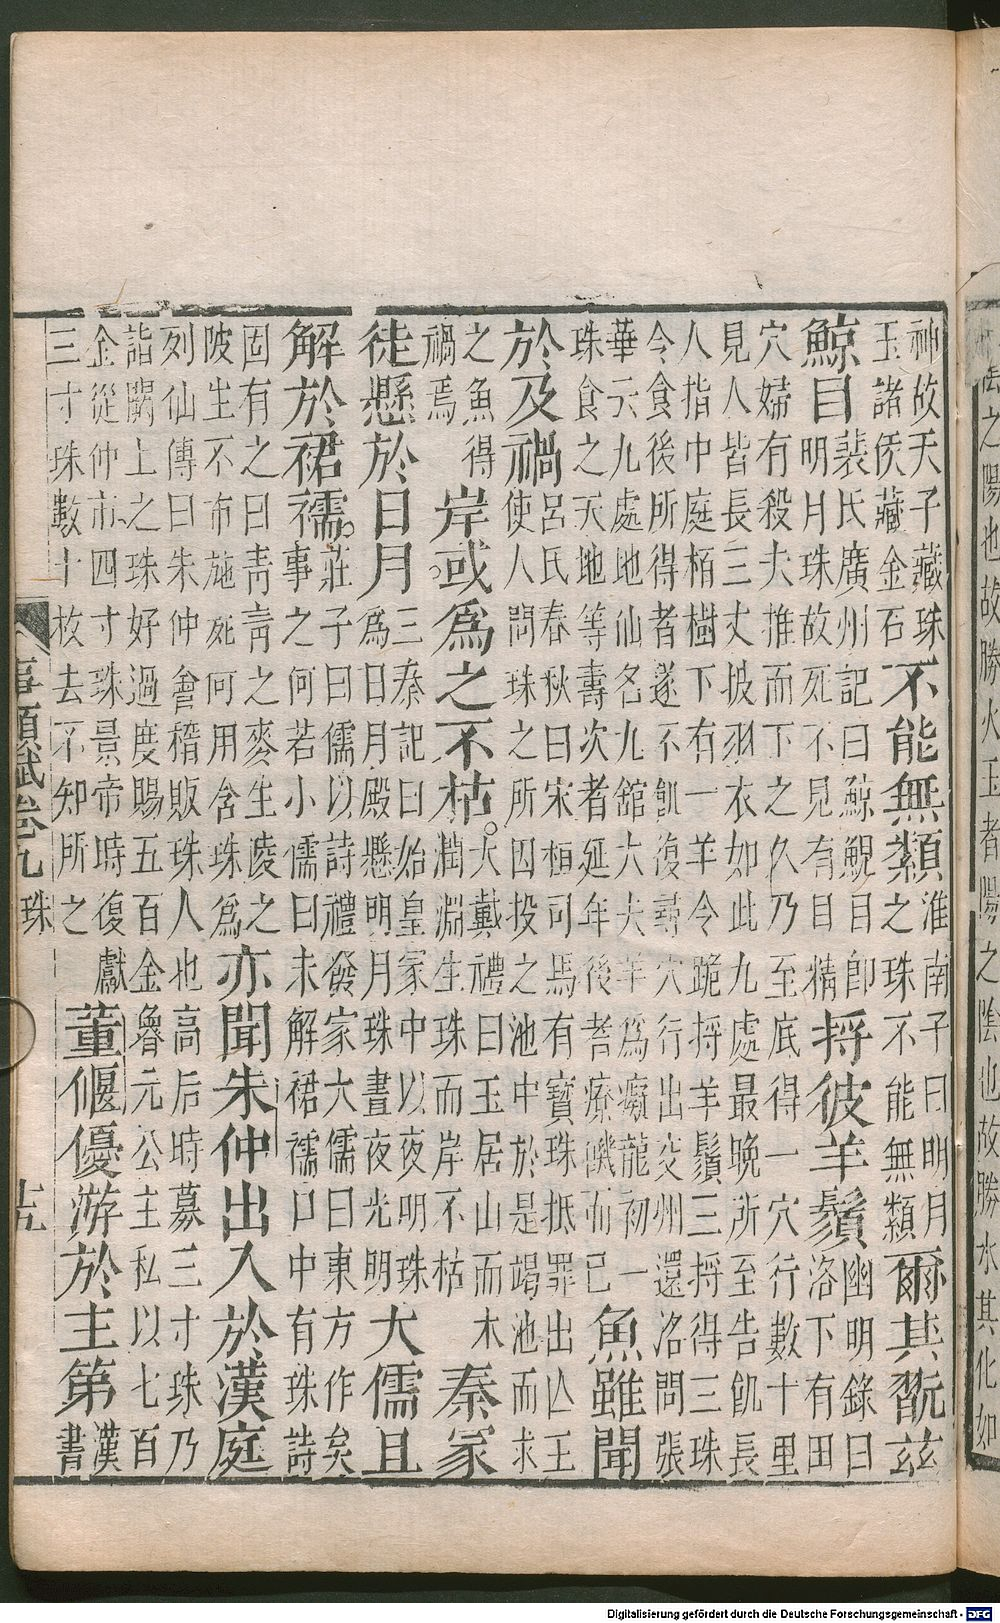 之陽也故勝火玉者陽之陰也故勝水其化如
神故天子藏珠
玉諸侯藏金石
不能無纇
淮南子曰明月
之珠不能無纇
爾其翫茲
鯨目
裴氏廣州記曰鯨鯢目卽
明月珠故死不見有目精
捋彼羊鬚
幽明錄曰
洛下有田
穴婦有殺夫推而下之久乃至底得一穴行數十里
見人皆長三丈披羽衣如此九處最晚所至告飢長
人指中庭栢樹下有一羊令跪捋羊鬚三捋得三珠
令食後所得者遂不飢復尋穴行出交州還洛問張
華云九處地仙名九舘大夫羊爲癡龍初一
珠食之天地等壽次者延年後者療飢而已
魚雖聞
於及禍
呂氏春秋曰宋桓司馬有寶珠抵罪出亾王
使人問珠之所囚投之池中於是竭池而求
之魚得
禍焉
岸或爲之不枯。
大戴禮曰玉居山而木
潤淵生珠而岸不枯
秦冢
徒懸於日月
三秦記曰始皇冢中以夜明珠
爲日月殿懸明月珠晝夜光明
大儒且
解於裙襦。
莊子曰儒以詩禮發冢大儒曰東方作矣
事之何若小儒曰未解裙襦口中有珠詩
固有之曰青青之麥生陵之
陂生不布施死何用含珠爲
亦聞朱仲出入於漢庭
列仙傳曰朱仲會稽販珠人也高后時募三寸珠乃
詣闕上之珠好過度賜五百金魯元公主私以七百
金從仲市四寸珠景帝時復獻
三寸珠數十枚去不知所之
董偃優游於主第
漢
書
事類賦卷九 珠 十五
Digitalisierung gefördert durch die Deutsche Forschungsgemeinschaft - DFG